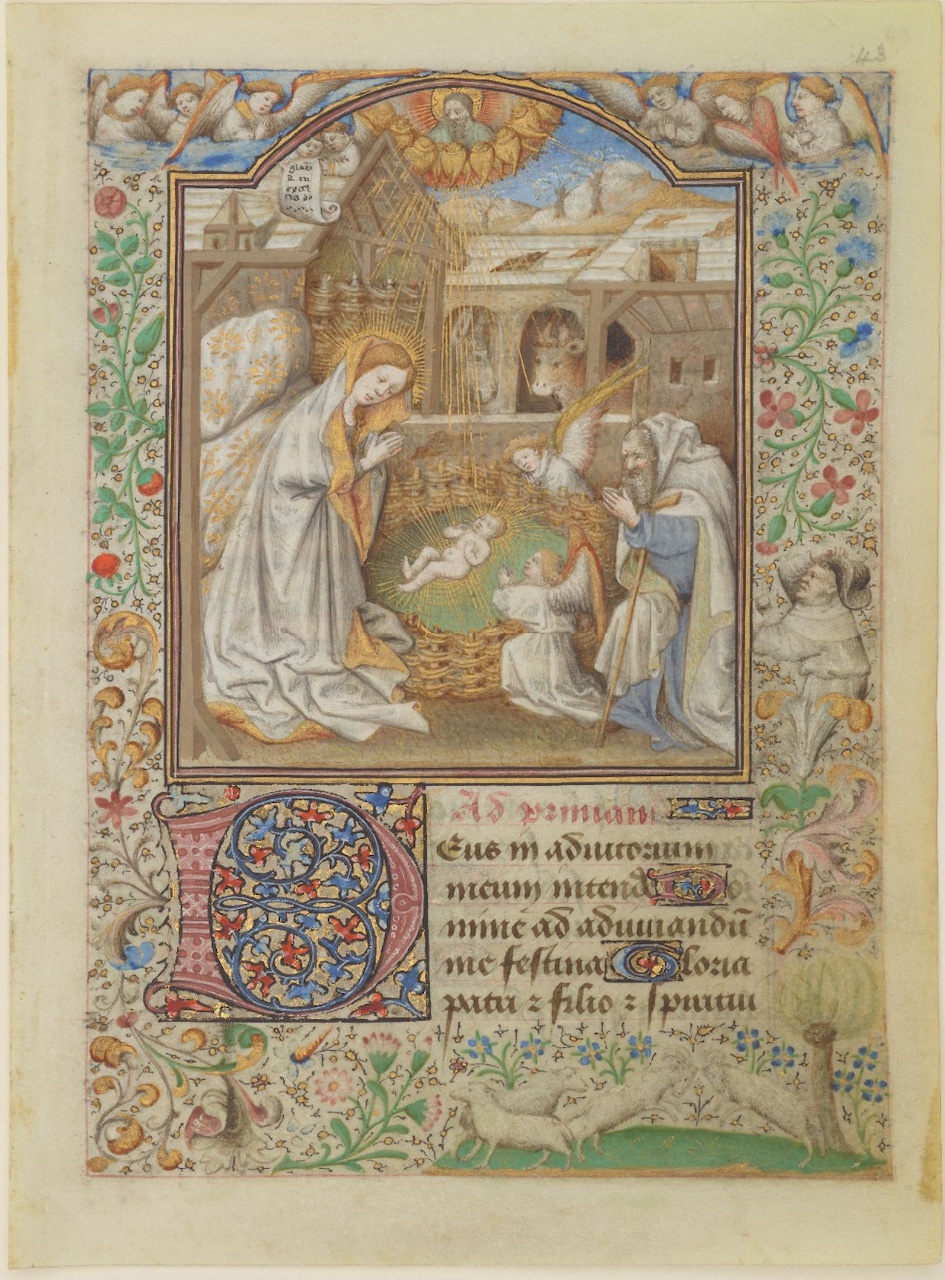 43
Glori
a in
excel
sis de
Ad primam
Deus in adiutorium
meum intende Do
mine ad adiuuandū
me festina Gloria
patri ⁊ filio ⁊ spiritui